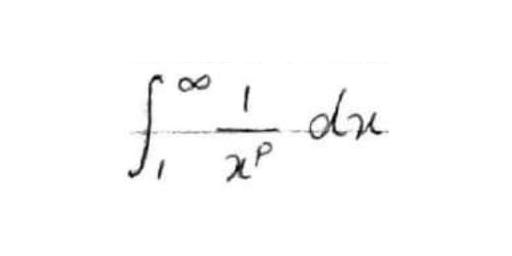 ∫₁^∞ 1/x^p dx